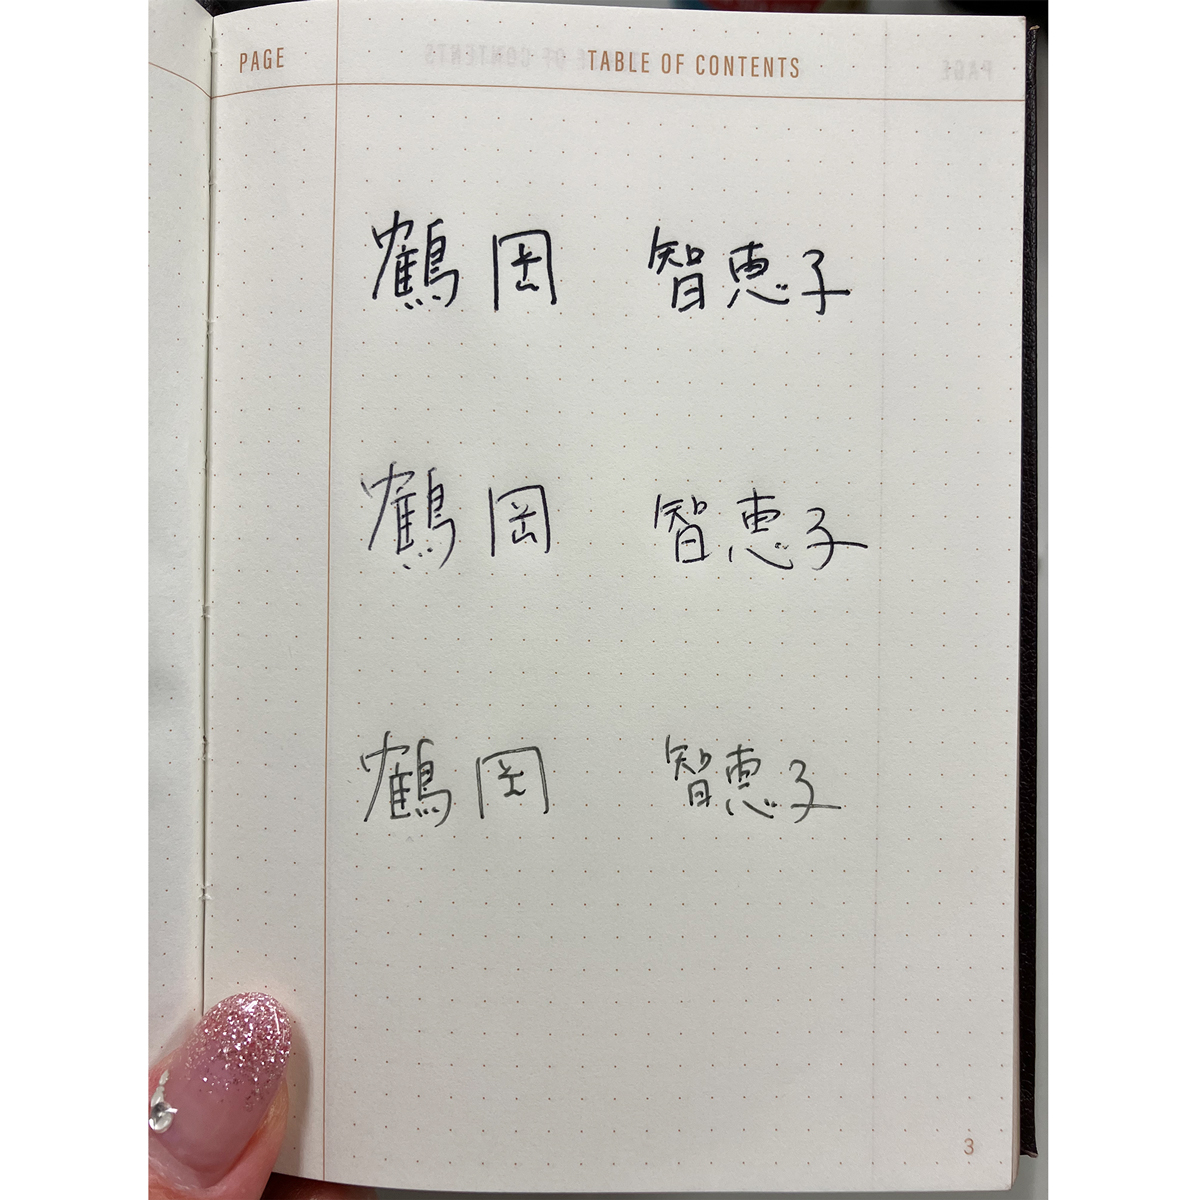 PAGE TABLE OF CONTENTS
鶴岡 智恵子
鶴岡 智恵子
鶴岡 智恵子
3